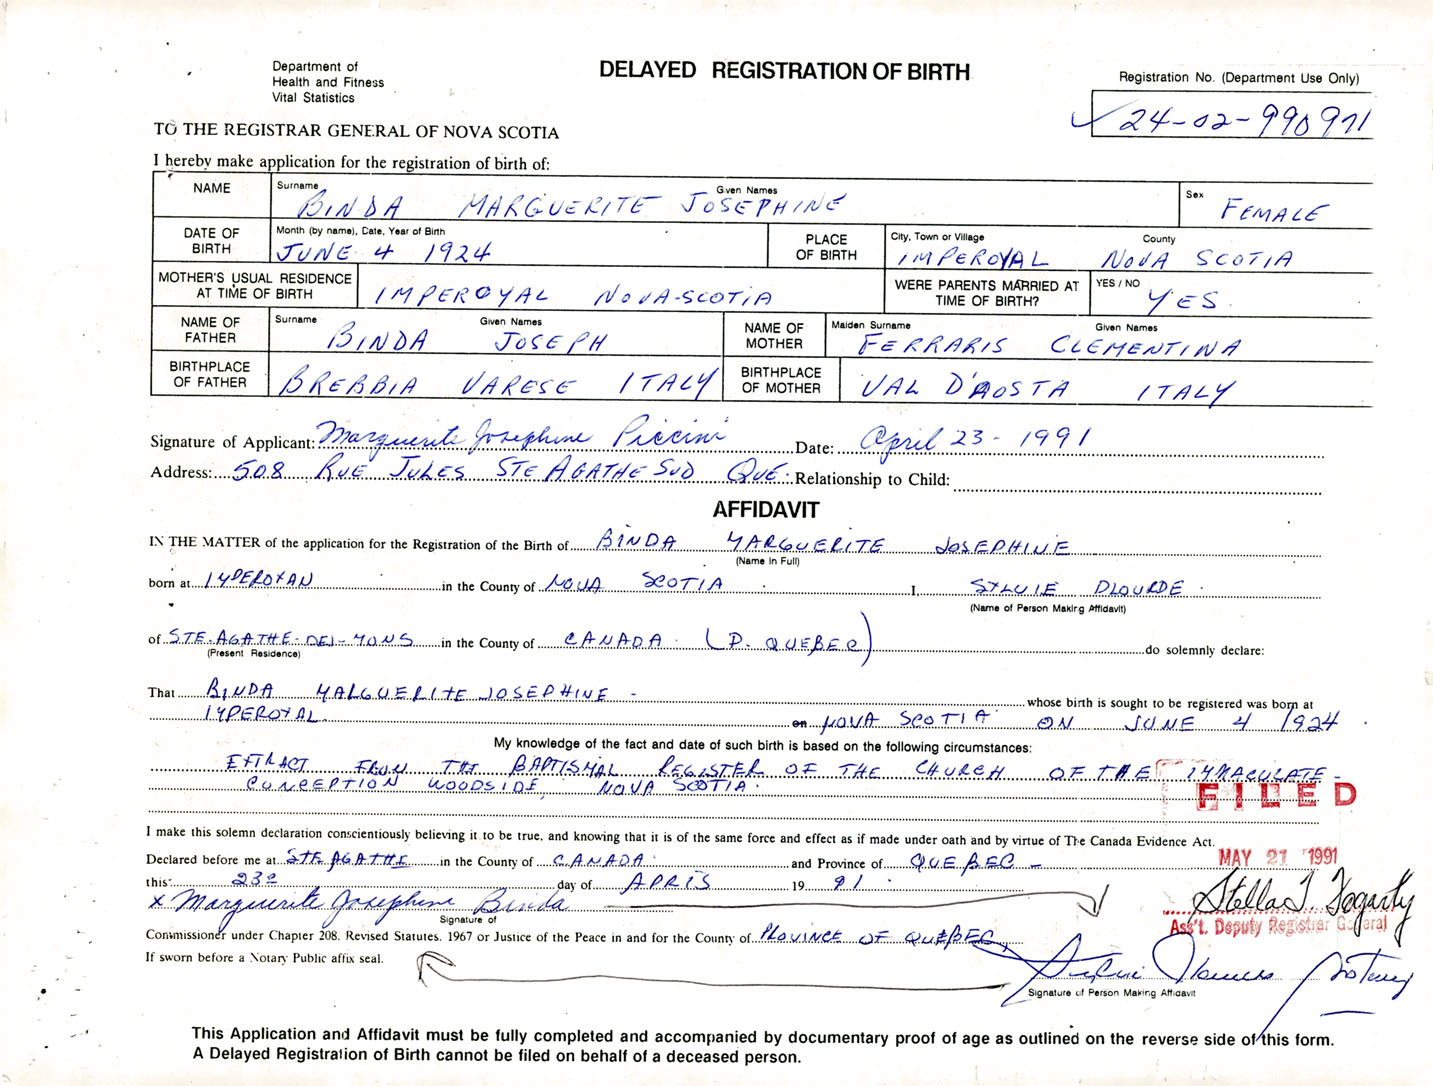 Department of
Health and Fitness
Vital Statistics
DELAYED REGISTRATION OF BIRTH
Registration No. (Department Use Only)
24-02-990971
TO THE REGISTRAR GENERAL OF NOVA SCOTIA
I hereby make application for the registration of birth of:
NAME Surname Given Names Sex
BINDA MARGUERITE JOSEPHINE FEMALE
DATE OF BIRTH Month (by name), Date, Year of Birth PLACE OF BIRTH City, Town or Village County
JUNE 4 1924 IMPEROYAL NOVA SCOTIA
MOTHER'S USUAL RESIDENCE AT TIME OF BIRTH IMPEROYAL NOVA-SCOTIA WERE PARENTS MARRIED AT TIME OF BIRTH? YES / NO YES
NAME OF FATHER Surname Given Names NAME OF MOTHER Maiden Surname Given Names
BINDA JOSEPH FERRARIS CLEMENTINA
BIRTHPLACE OF FATHER BREBBIA VARESE ITALY BIRTHPLACE OF MOTHER VAL D'AOSTA ITALY
Signature of Applicant: Marguerite Josephine Piccini Date: April 23 - 1991
Address: 508 RUE JULES STE AGATHE SUD QUE. Relationship to Child:
AFFIDAVIT
IN THE MATTER of the application for the Registration of the Birth of BINDA MARGUERITE JOSEPHINE
(Name in Full)
born at IMPEROYAN in the County of NOVA SCOTIA I SYLVIE PLOURDE
(Name of Person Making Affidavit)
of STE-AGATHE-DEI-MONS in the County of CANADA (P. QUEBEC) do solemnly declare:
(Present Residence)
That BINDA MARGUERITE JOSEPHINE - whose birth is sought to be registered was born at
IMPEROYAL on NOVA SCOTIA ON JUNE 4 1924
My knowledge of the fact and date of such birth is based on the following circumstances:
EXTRACT FROM THE BAPTISMAL REGISTER OF THE CHURCH OF THE IMMACULATE-
CONCEPTION WOODSIDE, NOVA SCOTIA.
FILED
I make this solemn declaration conscientiously believing it to be true, and knowing that it is of the same force and effect as if made under oath and by virtue of The Canada Evidence Act.
MAY 21 1991
Declared before me at STE AGATHE in the County of CANADA and Province of QUEBEC -
this 23e day of APRIS 19 91
Stella T. Fogarty
x Marguerite Josephine Binda
Signature of
Ass't. Deputy Registrar General
Commissioner under Chapter 208. Revised Statutes. 1967 or Justice of the Peace in and for the County of PROVINCE OF QUEBEC
If sworn before a Notary Public affix seal.
Notary
Signature of Person Making Affidavit
This Application and Affidavit must be fully completed and accompanied by documentary proof of age as outlined on the reverse side of this form.
A Delayed Registration of Birth cannot be filed on behalf of a deceased person.